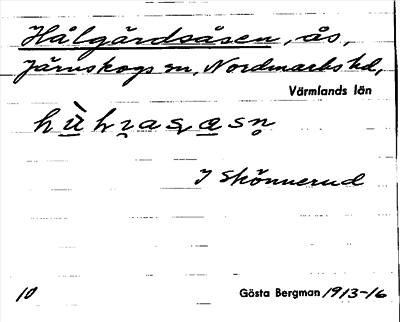 Hålgårdsåsen, ås,
Järnskogs sn, Nordmarks hd,
Värmlands län
I Skönnerud
10
Gösta Bergman 1913-16